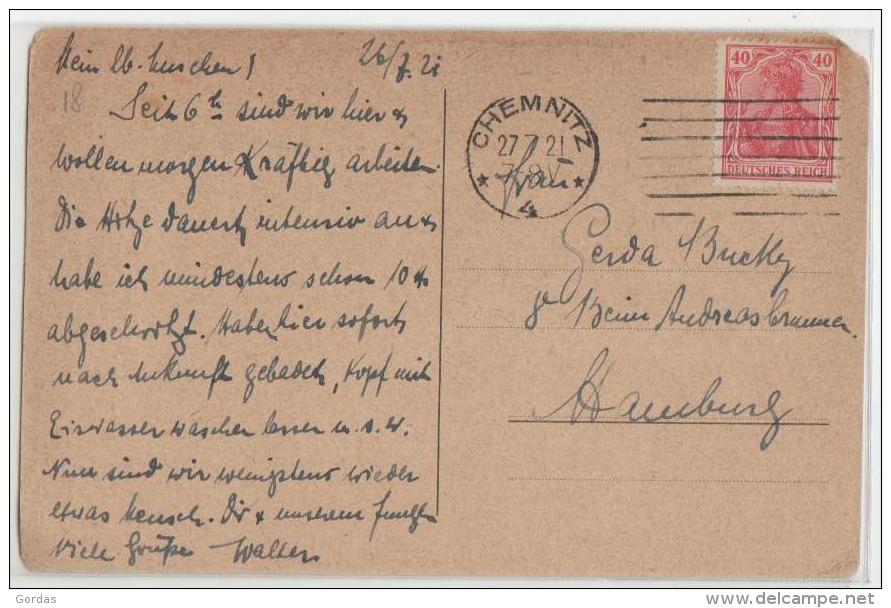 Mein lb. Muschen! 26/7.21
18
Seit 6 h sind wir hier &
wollen morgen kräftig arbeiten.
Die Hitze dauert intensiv an &
habe ich mindestens schon 10 ℔
abgeschwitzt. Haben hier sofort
nach Ankunft gebadet, Kopf mit
Eiswasser waschen lassen u. s. w.
Nun sind wir wenigstens wieder
etwas Mensch. Dir & unserem Jungen
viele Grüße Walter
CHEMNITZ
27.7.21
7-8V
4
40 40
DEUTSCHES REICH
Frau
Gerda
8 Beim Andreasbrunnen
Hamburg
© Gordas
www.delcampe.net